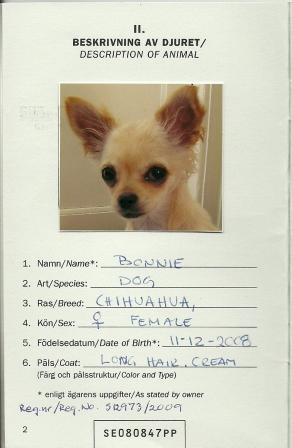 II.
BESKRIVNING AV DJURET/
DESCRIPTION OF ANIMAL
1. Namn/Name*: BONNIE
2. Art/Species: DOG
3. Ras/Breed: CHIHUAHUA,
4. Kön/Sex: ♀ FEMALE
5. Födelsedatum/Date of Birth*: 11-12-2008
6. Päls/Coat: LONG HAIR, CREAM
(Färg och pälsstruktur/Color and Type)
* enligt ägarens uppgifter/As stated by owner
Reg.nr/Reg.No. S12973/2009
2
SE080847PP